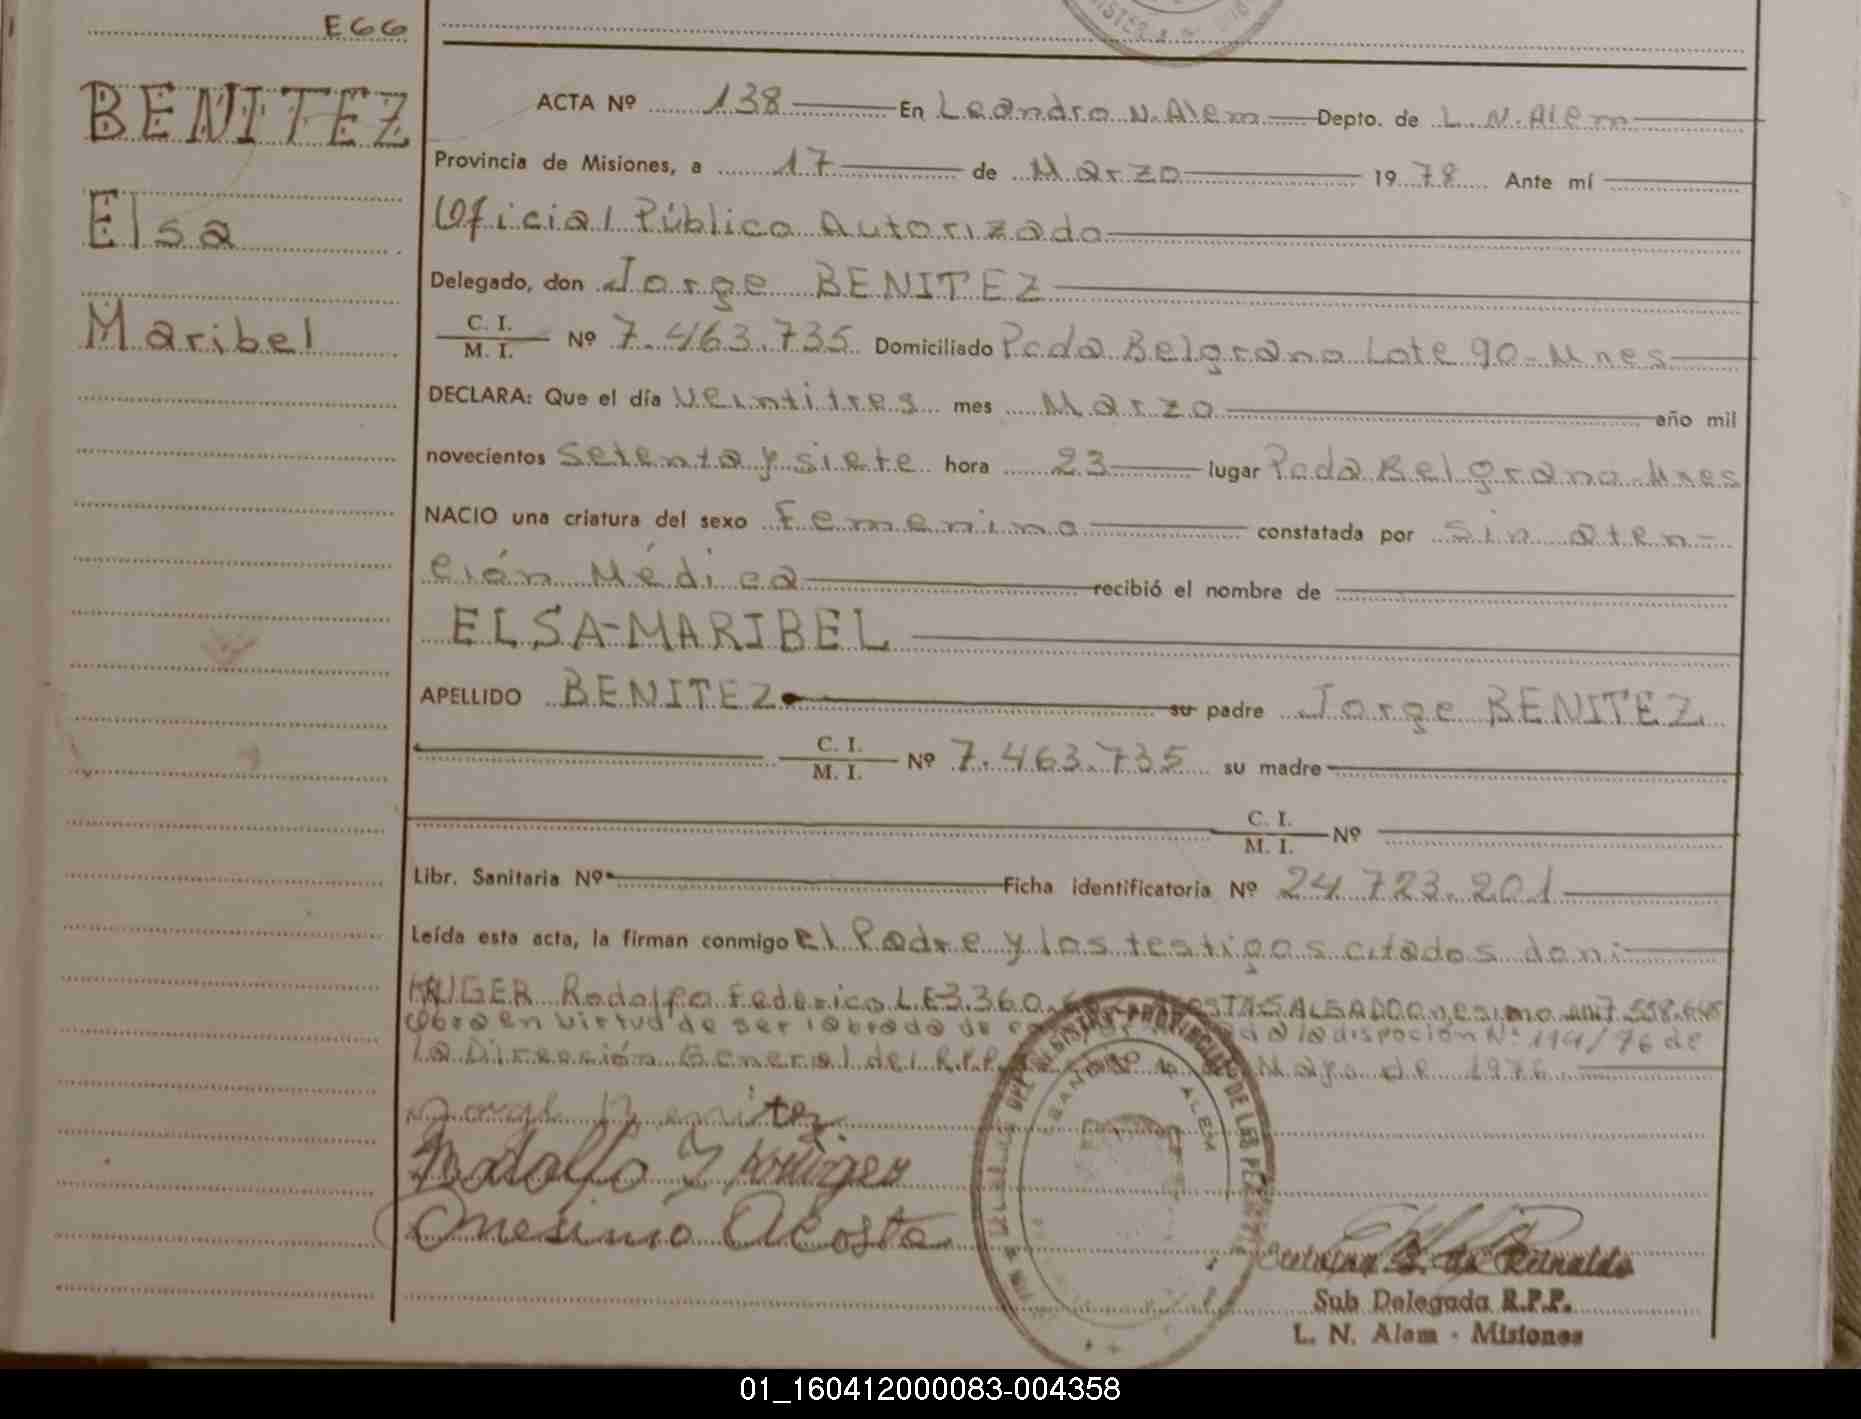 E66
BENITEZ
Elsa
Maribel
ACTA Nº 138 En Leandro N. Alem Depto. de L. N. Alem
Provincia de Misiones, a 17 de Marzo 1978 Ante mí
Oficial Público Autorizado
Delegado, don Jorge BENITEZ
C. I.
M. I. Nº 7.463.735 Domiciliado Pcda Belgrano Lote 90-Mnes
DECLARA: Que el día veintitres mes Marzo año mil
novecientos setenta y siete hora 23 lugar Pcda Belgrano-Mnes
NACIO una criatura del sexo Femenino constatada por sin aten-
ción Médica recibió el nombre de
ELSA-MARIBEL
APELLIDO BENITEZ su padre Jorge BENITEZ
C. I.
M. I. Nº 7.463.735 su madre
C. I.
M. I. Nº
Libr. Sanitaria Nº Ficha identificatoria Nº 24.723.201
Leída esta acta, la firman conmigo el Padre y los testigos citados doni
KRUGER Rodolfo Federico LE3.360. SALGADO
Obra en virtud de ser labrada de a la dispoción Nº 114/76 de
la Dirección General del R.P.P. Mayo de 1976
Jorge Benitez
Rodolfo F Krüger
Onesimo Acosta
LEANDRO N. ALEM
de Reinaldo
Sub Delegada R.P.P.
L. N. Alem - Misiones
01_160412000083-004358